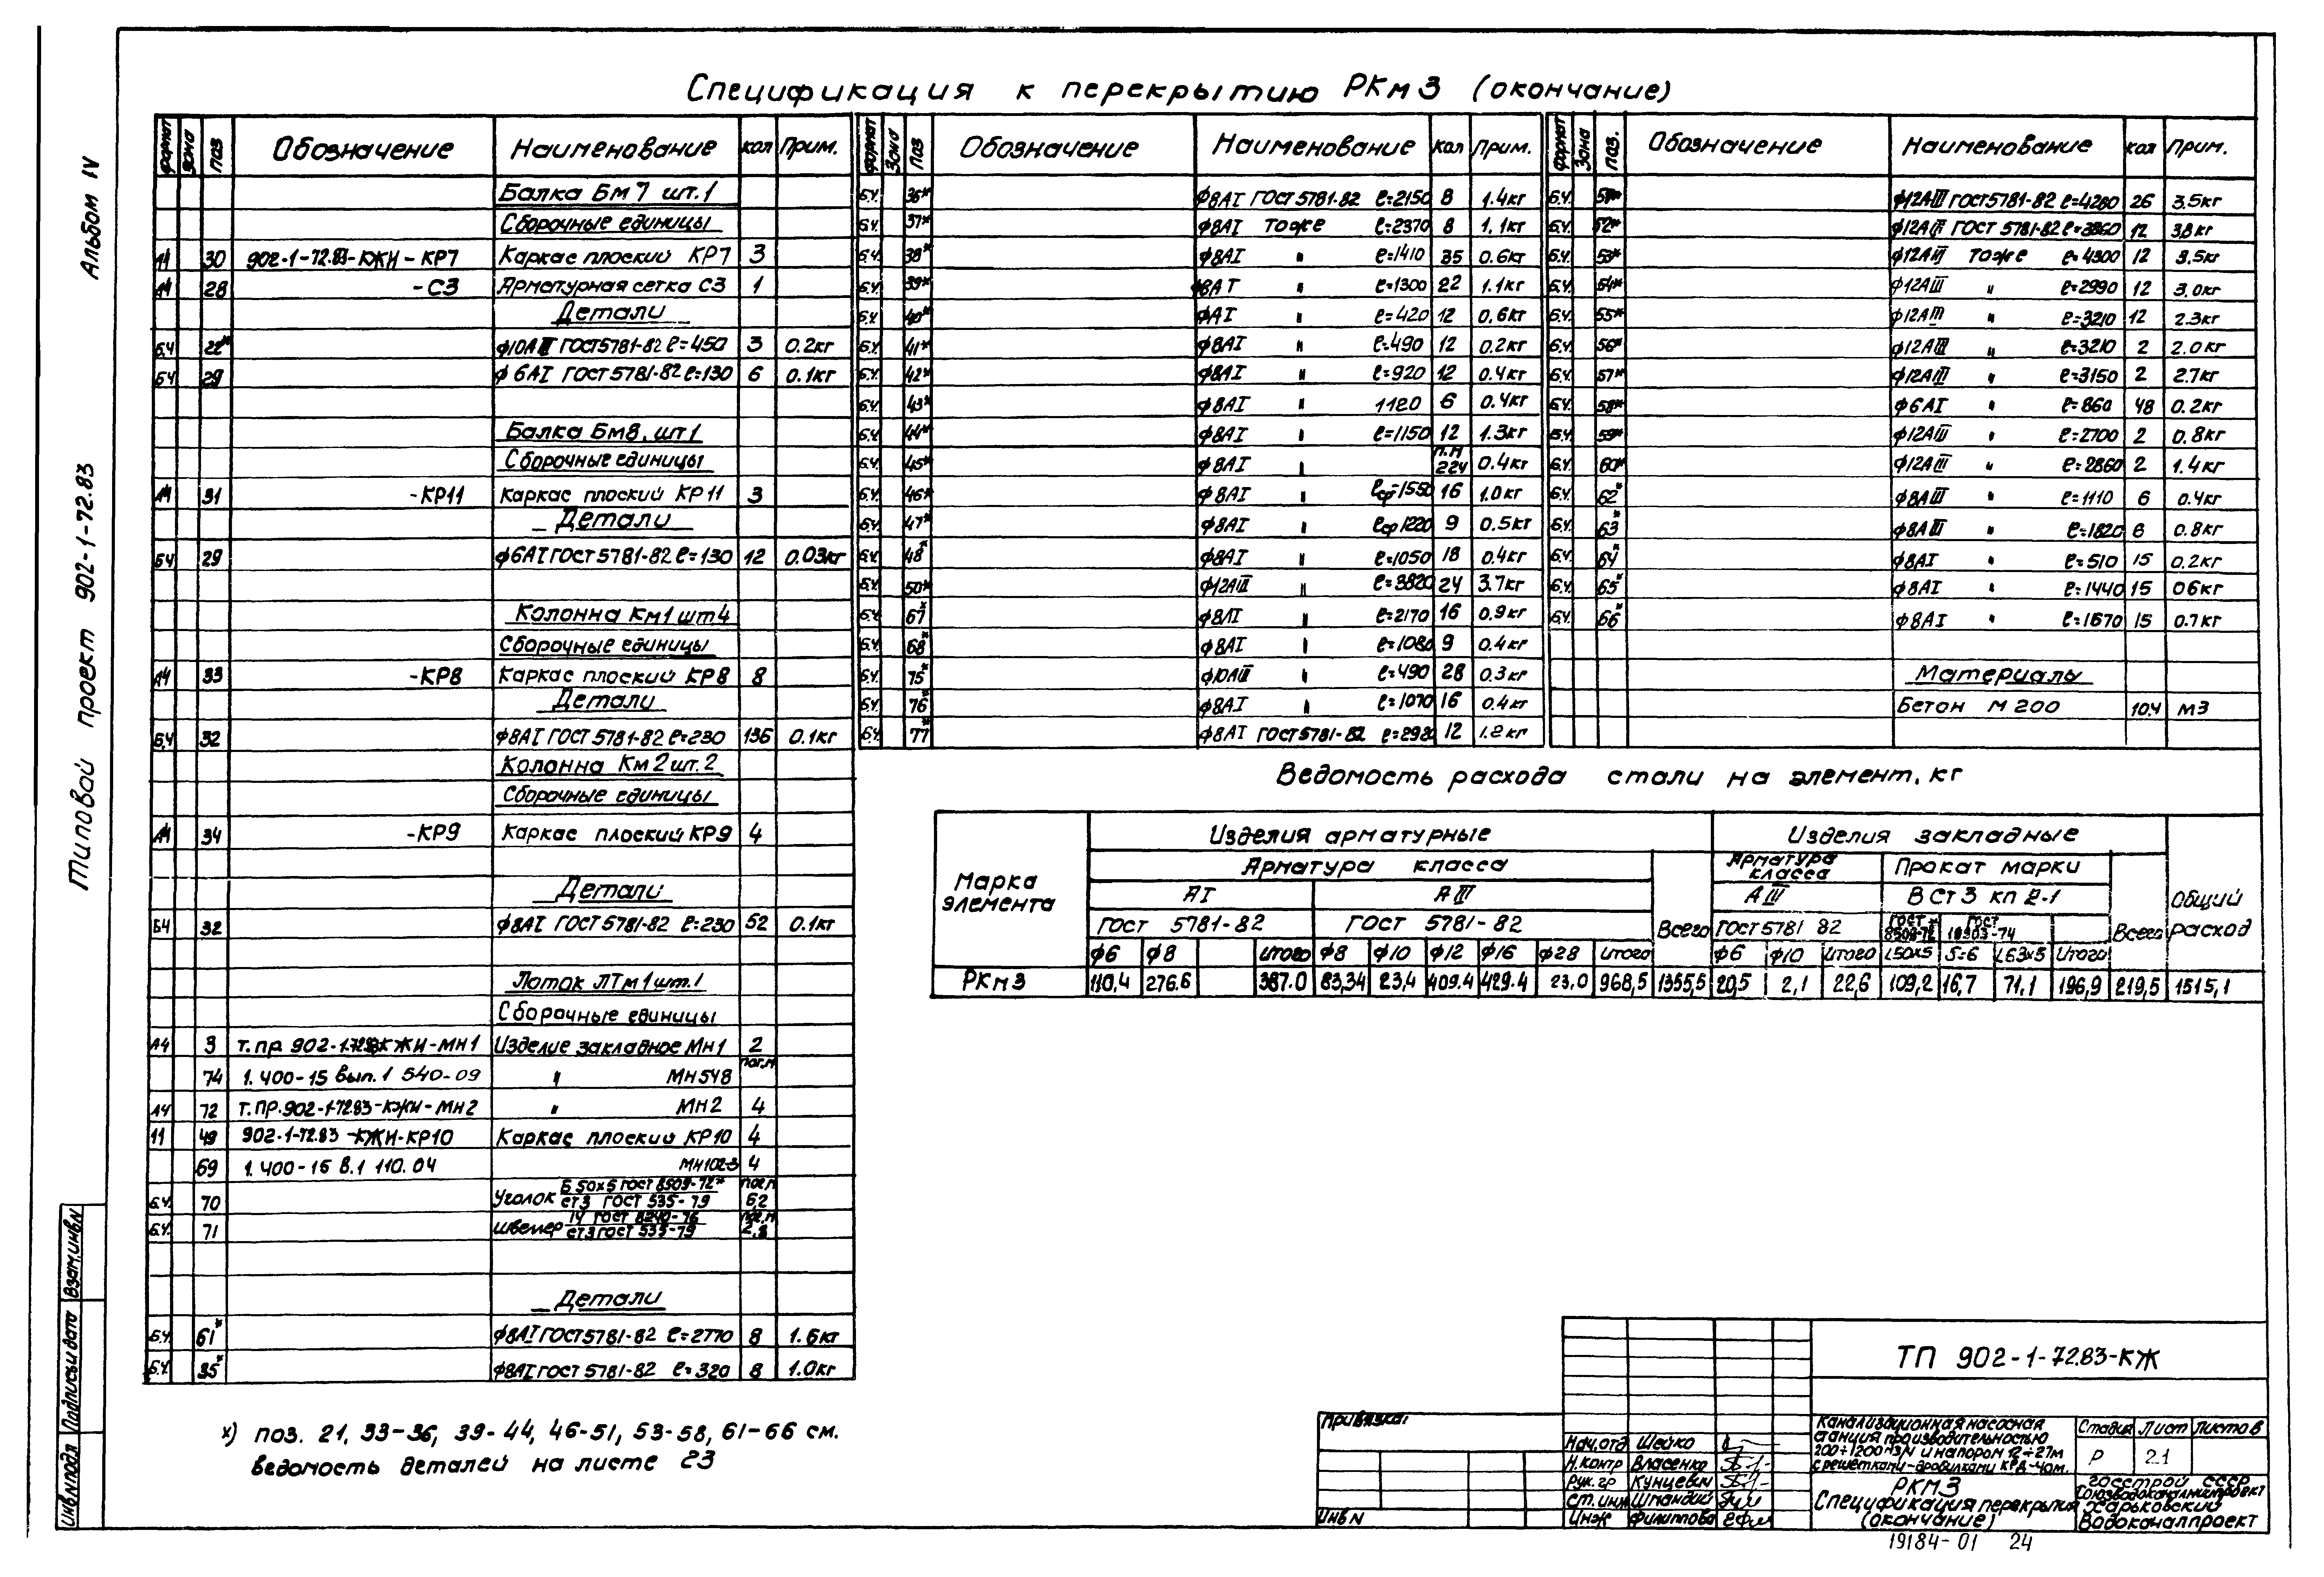 Спецификация к перекрытию РКм3 (окончание)
Альбом IV
Типовой проект 902-1-72.83
формат зона поз Обозначение Наименование кол Прим.
Балка Бм7 шт.1
Сборочные единицы
А4 30 902-1-72.83-КЖИ-КР7 Каркас плоский КР7 3
А4 28 -С3 Арматурная сетка С3 1
Детали
Б.Ч 22* ф10АIII ГОСТ5781-82 ℓ=450 3 0.2кг
Б.Ч 29 ф6АI ГОСТ5781-82 ℓ=130 6 0.1кг
Балка Бм8, шт1
Сборочные единицы
А4 31 -КР11 Каркас плоский КР11 3
Детали
Б.Ч 29 ф6АI ГОСТ5781-82 ℓ=130 12 0.03кг
Колонна Км1 шт4
Сборочные единицы
А4 33 -КР8 Каркас плоский КР8 8
Детали
Б.Ч 32 ф8АI ГОСТ5781-82 ℓ=230 136 0.1кг
Колонна Км2 шт.2
Сборочные единицы
А4 34 -КР9 Каркас плоский КР9 4
Детали
Б.Ч 32 ф8АI ГОСТ5781-82 ℓ=230 52 0.1кг
Лоток ЛТм1 шт.1
Сборочные единицы
А4 3 т.пр. 902-1-72.83КЖИ-МН1 Изделие закладное Мн1 2
74 1.400-15 вып.1 540-09 " МН548 пог.м
А4 72 т.пр.902-1-72.83-КЖИ-МН2 " МН2 4
11 49 902-1-72.83-КЖИ-КР10 Каркас плоский КР10 4
69 1.400-15 в.1 110.04 МН102-3 4
Б.Ч. 70 Уголок Б 50х5 ГОСТ 8509-72* пог.м
ст3 ГОСТ 535-79 6,2
Б.Ч. 71 Швеллер 14 ГОСТ 8240-76 пог.м
ст3 ГОСТ 535-79 2,8
Детали
Б.Ч. 61* ф8АI ГОСТ5781-82 ℓ=2770 8 1.6кг
Б.Ч. 35* ф8АI ГОСТ5781-82 ℓ=320 8 1.0кг
х) поз. 21, 33-36, 39-44, 46-51, 53-58, 61-66 см.
ведомость деталей на листе 23
формат Зона поз Обозначение Наименование кол Прим.
Б.Ч. 36* ф8АI ГОСТ5781-82 ℓ=2150 8 1.4кг
Б.Ч. 37* ф8АI Тоже ℓ=2370 8 1.1кг
Б.Ч. 38* ф8АI " ℓ=1410 35 0.6кг
Б.Ч. 39* ф8АI " ℓ=1300 22 1.1кг
Б.Ч. 40* фАI " ℓ=420 12 0.6кг
Б.Ч. 41* ф8АI " ℓ=490 12 0.2кг
Б.Ч. 42* ф8АI " ℓ=920 12 0.4кг
Б.Ч. 43* ф8АI " 1120 6 0.4кг
Б.Ч. 44* ф8АI " ℓ=1150 12 1.3кг
Б.Ч. 45* ф8АI " п.м 224 0.4кг
Б.Ч. 46* ф8АI " ℓср=1550 16 1.0кг
Б.Ч. 47* ф8АI " ℓср1220 9 0.5кг
Б.Ч. 48* ф8АI " ℓ=1050 18 0.4кг
Б.Ч. 50* ф12АIII " ℓ=3820 24 3.7кг
Б.Ч. 67* ф8АI " ℓ=2170 16 0.9кг
Б.Ч. 68* ф8АI " ℓ=1080 9 0.4кг
Б.Ч. 75* ф10АIII " ℓ=490 28 0.3кг
Б.Ч. 76* ф8АI " ℓ=1070 16 0.4кг
Б.Ч. 77* ф8АI ГОСТ5781-82 ℓ=2920 12 1.2кг
формат Зона поз. Обозначение Наименование кол Прим.
Б.Ч. 51* ф12АIII ГОСТ5781-82 ℓ=4280 26 3.5кг
Б.Ч. 52* ф12АIII ГОСТ 5781-82 ℓ=3860 12 3.8кг
Б.Ч. 53* ф12АIII Тоже ℓ=4300 12 3.5кг
Б.Ч. 54* ф12АIII " ℓ=2990 12 3.0кг
Б.Ч. 55* ф12АIII " ℓ=3210 12 2.3кг
Б.Ч. 56* ф12АIII " ℓ=3210 2 2.0кг
Б.Ч. 57* ф12АIII " ℓ=3150 2 2.7кг
Б.Ч. 58* ф6АI " ℓ=860 48 0.2кг
Б.Ч. 59* ф12АIII " ℓ=2700 2 0.8кг
Б.Ч. 60* ф12АIII " ℓ=2860 2 1.4кг
Б.Ч. 62* ф8АIII " ℓ=1110 6 0.4кг
Б.Ч. 63* ф8АIII " ℓ=1820 6 0.8кг
Б.Ч. 64* ф8АI " ℓ=510 15 0.2кг
Б.Ч. 65* ф8АI " ℓ=1440 15 06кг
Б.Ч. 66* ф8АI " ℓ=1670 15 0.7кг
Материалы
Бетон М 200 10.4 м3
Ведомость расхода стали на элемент, кг
Марка элемента Изделия арматурные Изделия закладные Общий расход
Арматура класса Всего Арматура класса Прокат марки Всего
АI АIII АIII ВСт3 кп 2-1
ГОСТ 5781-82 ГОСТ 5781-82 ГОСТ5781 82 ГОСТ 8509-72* ГОСТ 19903-74
ф6 ф8 Итого ф8 ф10 ф12 ф16 ф28 Итого ф6 ф10 Итого L50х5 S=6 L63х5 Итого
РКм3 110,4 276.6 387.0 83,34 23,4 409.4 429.4 23,0 968,5 1355,5 20,5 2,1 22,6 109,2 16,7 71,1 196,9 219,5 1515,1
ТП 902-1-72.83-КЖ
Привязка:
Инв N
Нач.отд Шейко
Н.контр Власенко
Рук.гр Кунцевич
Ст.инж Шмандий
Инж Филиппова
Канализационная насосная
станция производительностью
200÷1200м3/ч и напором 12÷27м
с решетками-дробилками КРД-40м.
Стадия Лист Листов
Р 21
РКМ3
Спецификация перекрытия
(окончание)
Госстрой СССР
Союзводоканалниипроект
Харьковский
Водоканалпроект
19184-01 24
Инв N подл Подпись и дата Взам.инв.N